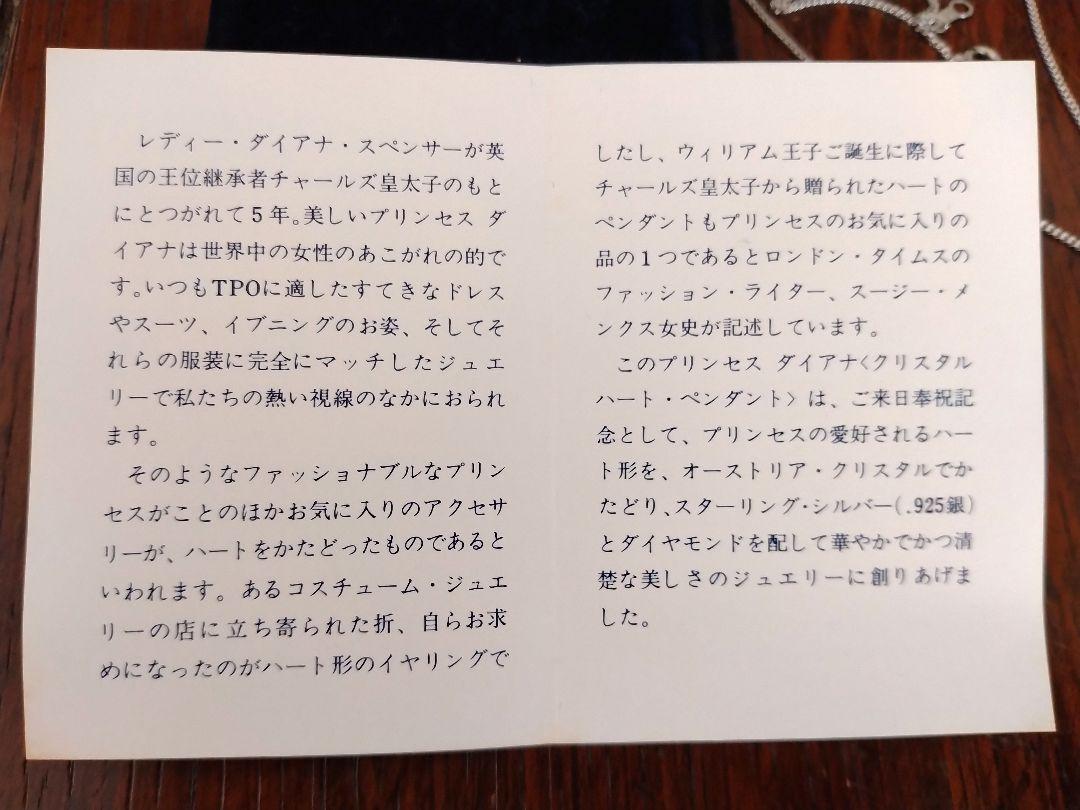 レディー・ダイアナ・スペンサーが英
国の王位継承者チャールズ皇太子のもと
にとつがれて5年。美しいプリンセス ダ
イアナは世界中の女性のあこがれの的で
す。いつもTPOに適したすてきなドレス
やスーツ、イブニングのお姿、そしてそ
れらの服装に完全にマッチしたジュエ
リーで私たちの熱い視線のなかにおられ
ます。
そのようなファッショナブルなプリン
セスがことのほかお気に入りのアクセサ
リーが、ハートをかたどったものであると
いわれます。あるコスチューム・ジュエ
リーの店に立ち寄られた折、自らお求
めになったのがハート形のイヤリングで
したし、ウィリアム王子ご誕生に際して
チャールズ皇太子から贈られたハートの
ペンダントもプリンセスのお気に入りの
品の1つであるとロンドン・タイムスの
ファッション・ライター、スージー・メ
ンクス女史が記述しています。
このプリンセス ダイアナ〈クリスタル
ハート・ペンダント〉は、ご来日奉祝記
念として、プリンセスの愛好されるハー
ト形を、オーストリア・クリスタルでか
たどり、スターリング・シルバー(.925銀)
とダイヤモンドを配して華やかでかつ清
楚な美しさのジュエリーに創りあげま
した。